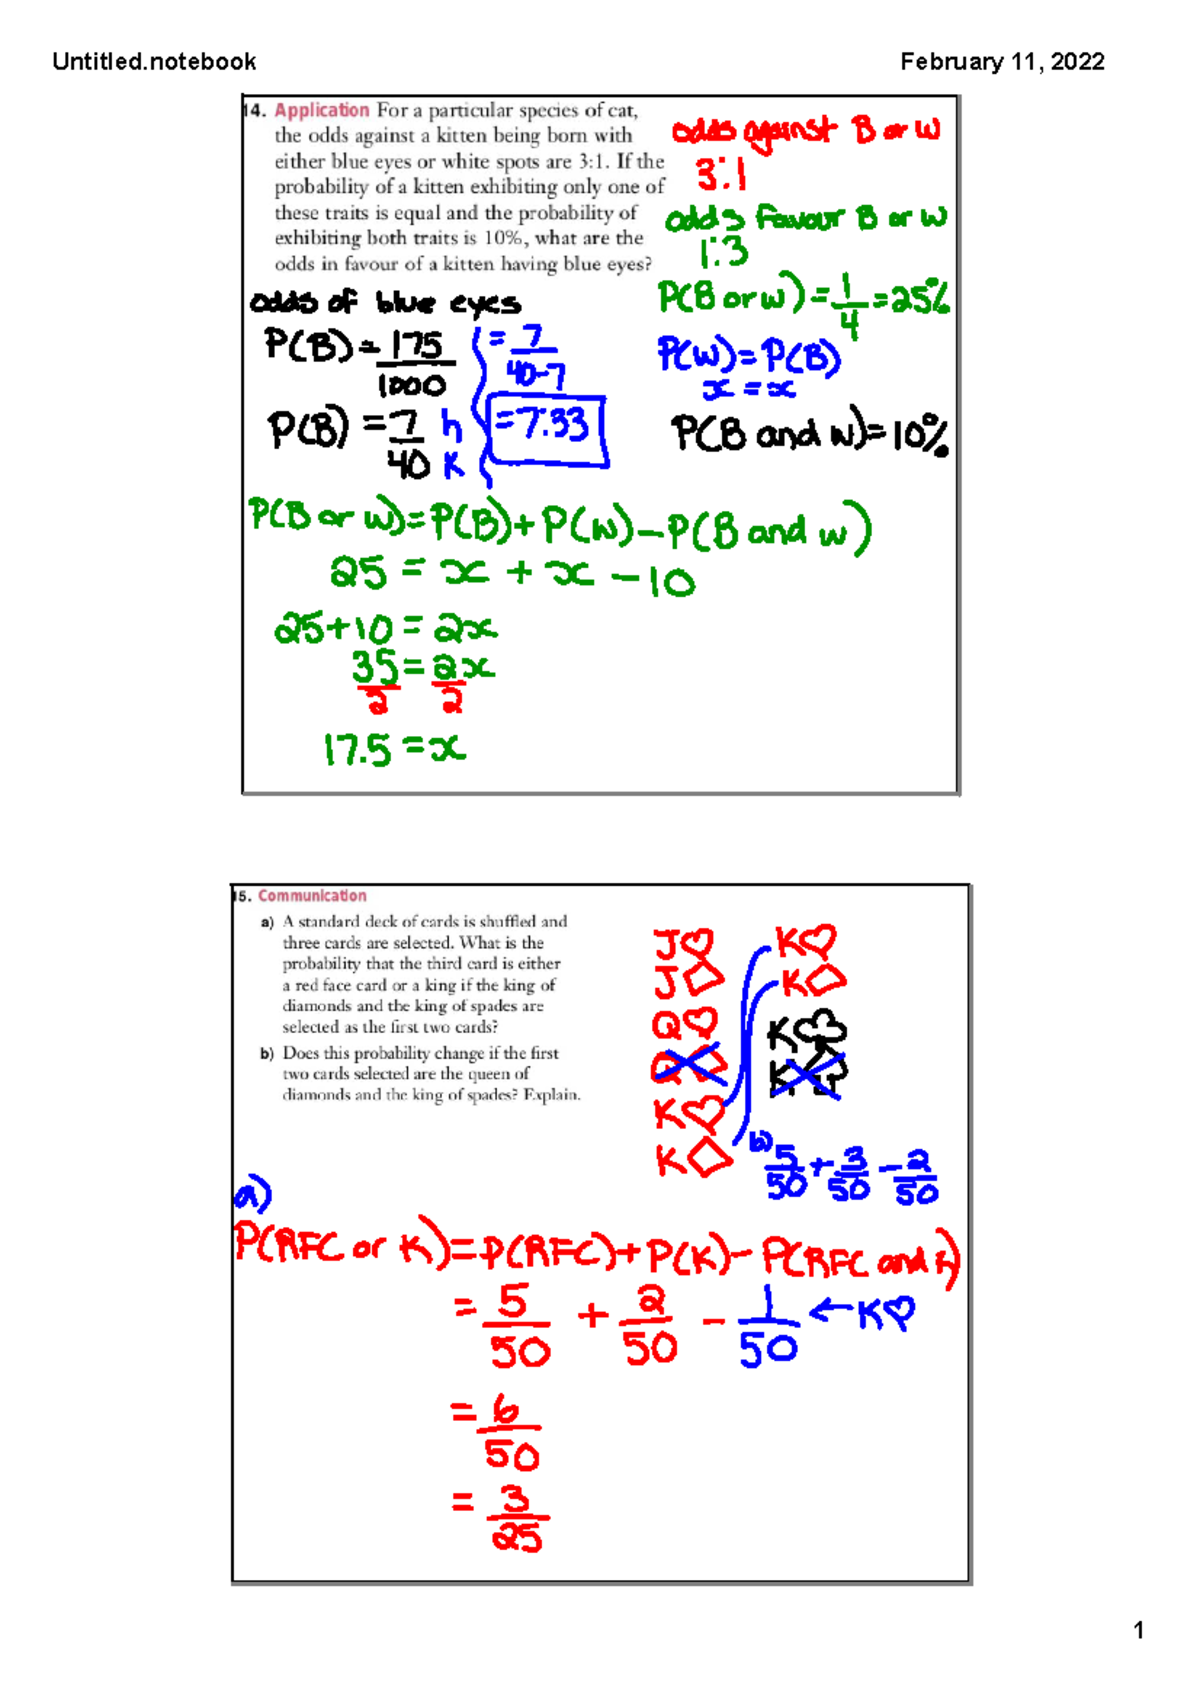 Untitled.notebook
February 11, 2022
14. Application For a particular species of cat,
the odds against a kitten being born with
either blue eyes or white spots are 3:1. If the
probability of a kitten exhibiting only one of
these traits is equal and the probability of
exhibiting both traits is 10%, what are the
odds in favour of a kitten having blue eyes?
odds against B or W
3:1
odds favour B or W
1:3
P(B or W) = 1/4 = 25%
P(W) = P(B)
x = x
P(B and W) = 10%
odds of blue eyes
P(B) = 175/1000
P(B) = 7/40 h/k
= 7/40-7
= 7:33
P(B or W) = P(B) + P(W) - P(B and W)
25 = x + x - 10
25+10 = 2x
35/2 = 2x/2
17.5 = x
15. Communication
a) A standard deck of cards is shuffled and
three cards are selected. What is the
probability that the third card is either
a red face card or a king if the king of
diamonds and the king of spades are
selected as the first two cards?
b) Does this probability change if the first
two cards selected are the queen of
diamonds and the king of spades? Explain.
J♡ K♡
J♢ K♢
Q♡ K♧
Q♢ K♤
K♡
K♢
b) 5/50 + 3/50 - 2/50
a)
P(RFC or K) = P(RFC) + P(K) - P(RFC and K)
= 5/50 + 2/50 - 1/50 ← K♡
= 6/50
= 3/25
1